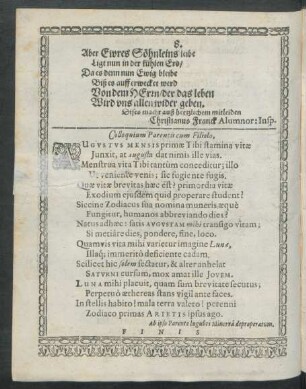 8.
Aber Ewres Söhnleins leibe
Ligt nun in der kühlen Erd/
Da es denn nun Ewig bleibe
Biß es aufferwecket werd
Von dem HErrn der das leben
Wird vns allen wider geben.
Dises macht auß hertzlichem mitleiden
Christianus Franck Alumnor: Insp.
Colloquium Parentis cum Filiolo,
AUGUSTUS MENSIS primæ Tibi stamina vitæ
Junxit, at augusta dat nimis ille vias.
Menstrua vita Tibi tantùm conceditur; illo
Ut veniente venis; sic fugiente fugis.
Quæ vitæ brevitas hæc est? primordia vitæ
Exodium ejusdem quid properare student?
Siccine Zodiacus sua nomina muneris æquè
Fungitur, humanos abbreviando dies?
Natus ad hæc: satis AUGUSTAM mihi transigo vitam;
Si metiare dies, pondere, fine, loco.
Quamvis vita mihi varietur imagine Lunæ,
Illâq; immeritò deficiente cadam,
Scilicet hic sidem sectatur, & alter anhelat
SATURNI cursum, mox amat ille JOVEM.
LUNA mihi placuit, quam sum brevitate secutus;
Perpetuò æthereas stans vigil ante faces.
In stellis habito! mala terra valeto! perenni
Zodiaco primas ARIETIS ipsus ago.
ab ipso Parente lugubri itineris deproperatum.
FINIS